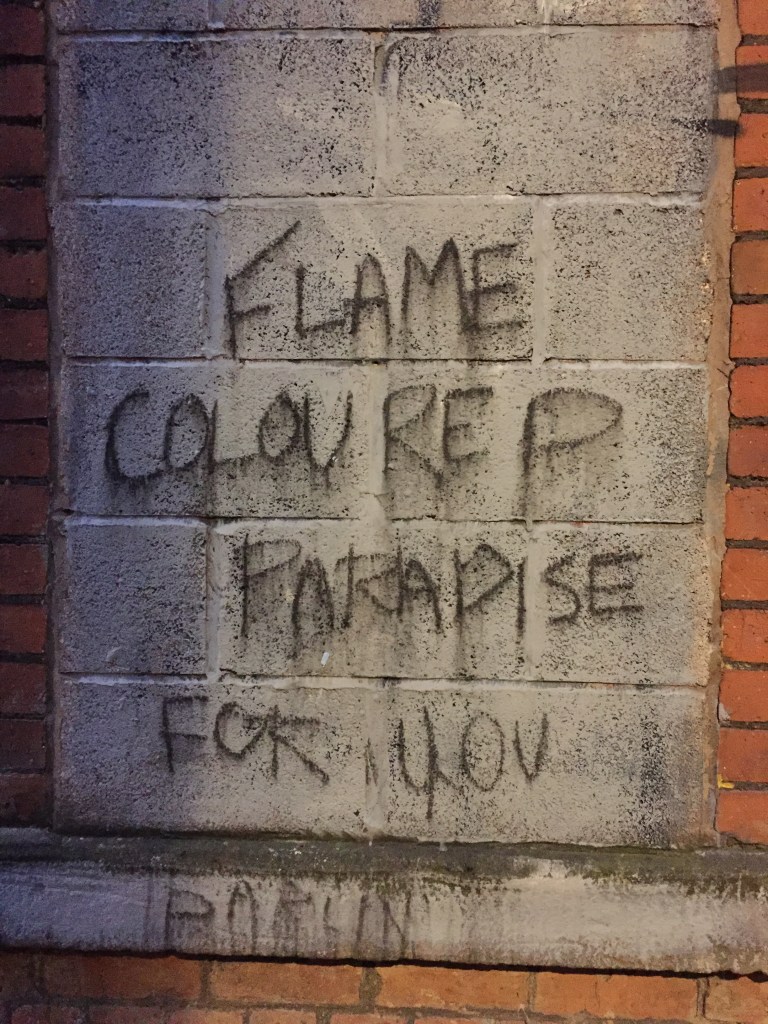 FLAME
COLOURED
PARADISE
FOR YOU